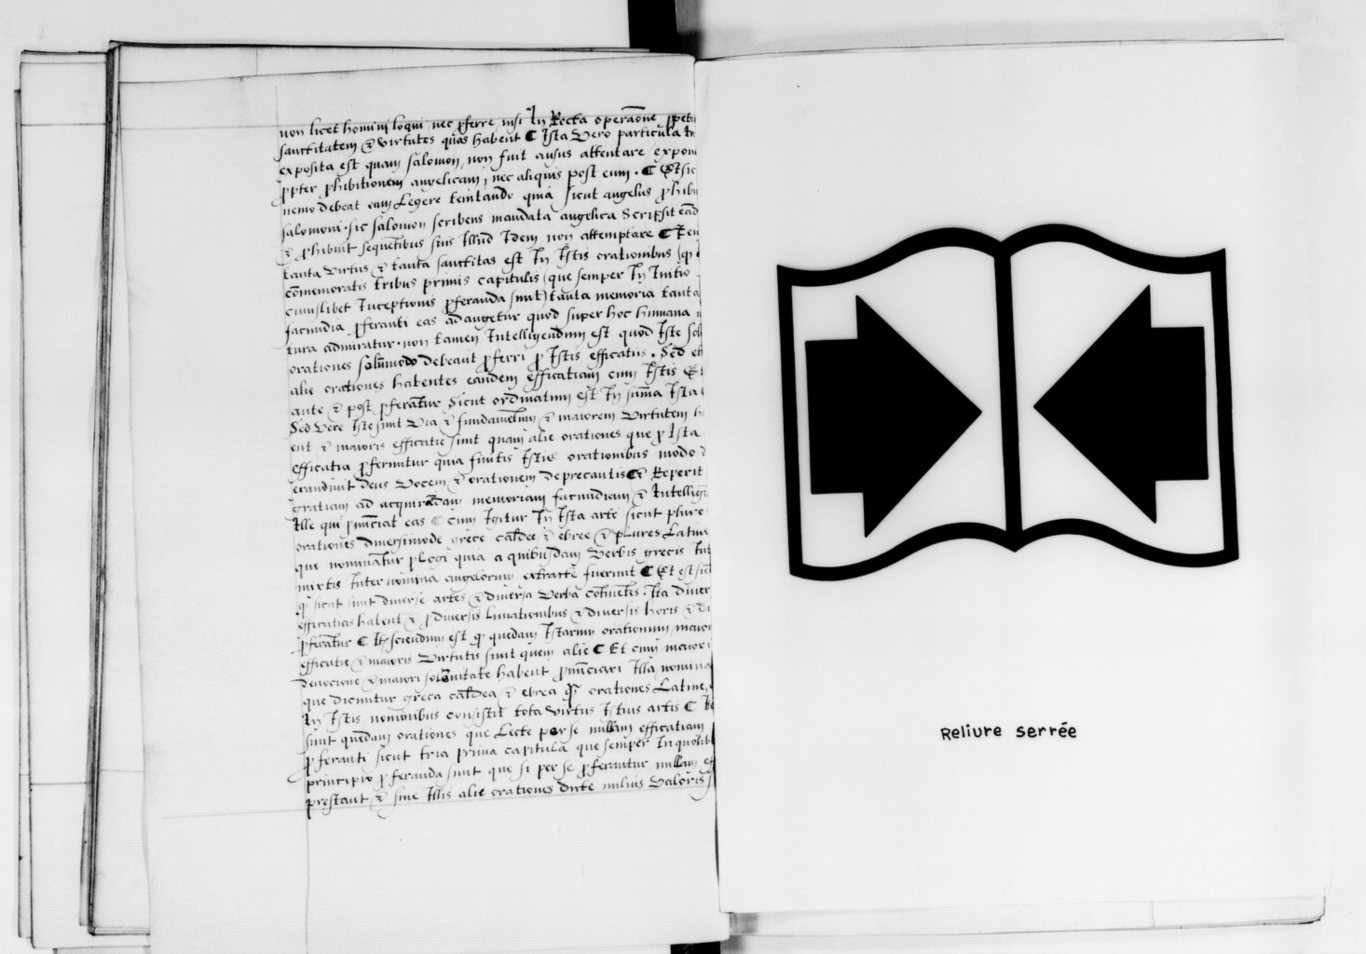 non licet homini loqui nec ꝓferre nisi In Recta operac̄one
sanctitatem & virtutes quas habent ¶ Ista Vero particula
exposita est quam salomon non fuit ausus attentare expon
ꝓpter ꝓhibitionem angelicam, nec aliquis post eum · ¶ Et sic
nemo debeat eam Legere temtando quia sicut angelus ꝓhibu
salomoni · sic salomon scribens mandata angelica Scripsit
& ꝓhibuit sequentibus suis Illud Idem non attemptare ¶
tanta virtus & tanta sanctitas est In Istis orationibus
com̄emoratis tribus primis capitulis (que semper In Initio
cuiuslibet Inceptionis ꝓferanda sunt) tanta memoria tanta
facundia ꝓferanti eas adaugetur quod super hoc humana
tura admiratur · non tamen Intelligendum est quod Iste sol
orationes solūmodo debeant ꝓferri ꝓ Istis efficatiis · Sed
alie orationes habentes eandem efficatiam cum Istis
ante & post ꝓferantur Sicut ordinatum est In sum̄a Ista
Sed Vere Iste sunt Via & fundamentum & maiorem Virtutem
ent & maioris efficatie sunt quam alie orationes que ꝓ Ista
efficatia ꝓferuntur quia finitis Istis orationibus modo
exaudiuit deus Vocem & orationem deprecantis ¶ Reperit
gratiam ad acquirendam memoriam facundiam & Intellig
Ille qui ꝓnunciat eas ¶ cum Igitur In Ista arte sicut plure
orationes diuersimode grece caldee & ebree & plures Latin
que nominantur ꝓlogi quia a quibusdam Verbis grecis
mixtis Inter nomina angelorum extracte fuerunt ¶ Et est
ꝙ sicut sunt diuerse artes & diuersa Verba Ita diuer
efficatias habent & ꝓ diuersis lunationibus & diuersis horis &
ꝓferantur ¶ sciendum est ꝙ quedam Istarum orationum maior
efficatie & maioris Virtutis sunt quam alie ¶ Et cum maiori
deuocione & maiori solennitate habent ꝓnunciari Illa nomina
que dicuntur greca caldea & ebrea orationes Latine
In Istis nominibus consistit tota Virtus Istius artis ¶
sunt quedam orationes que Lecte per se nullam efficatiam
ꝓferanti sicut tria prima capitula que semper In quolib
principio ꝓferanda sunt que si per se ꝓferantur nullam
prestant & sine Illis alie orationes dicte nullius Valoris
Reliure serrée